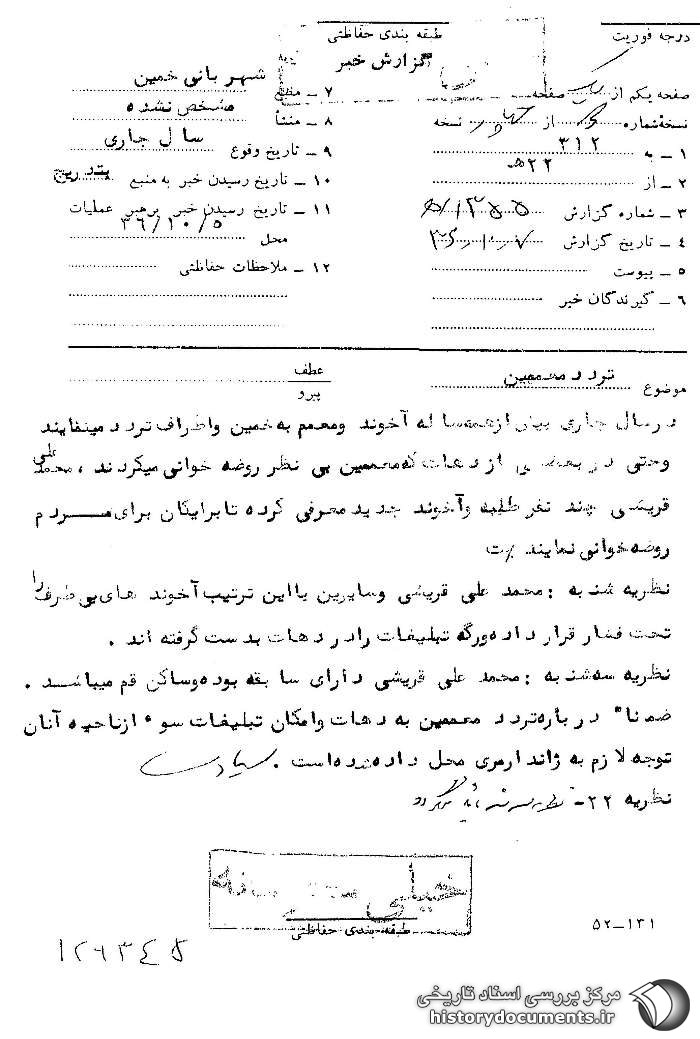 درجه فوریت
طبقه بندی حفاظتی
گزارش خبر
صفحه یکم از ... صفحه
نسخهٔ شماره ... از ... نسخه
۱ ـ به ۳۱۲
۲ ـ از ۲۲ه
۳ ـ شماره گزارش
۴ ـ تاریخ گزارش
۵ ـ پیوست
۶ ـ گیرندگان خبر
۷ ـ منبع شهربانی خمین
۸ ـ منشأ مشخص نشده
۹ ـ تاریخ وقوع سال جاری
۱۰ ـ تاریخ رسیدن خبر به منبع بتدریج
۱۱ ـ تاریخ رسیدن خبر برهبر عملیات
محل ۳۶/۱۰/۵
۱۲ ـ ملاحظات حفاظتی
موضوع تردد معممین
عطف
پیرو
در سال جاری بیش از همه ساله آخوند ومعمم به خمین واطراف تردد مینمایند
وحتی در بعضی از دهات که معممین بی نظر روضه خوانی میکردند ، محمد علی
قریشی چند نفر طلبه وآخوند جدید معرفی کرده تا برایگان برای مردم
روضه خوانی نمایند
نظریه شنبه : محمد علی قریشی وسایرین بااین ترتیب آخوند های بی طرف را
تحت فشار قرار داده ورگه تبلیغات را در دهات بدست گرفته اند .
نظریه سه شنبه : محمد علی قریشی دارای سابقه بوده وساکن قم میباشد .
ضمنا" درباره تردد معممین به دهات وامکان تبلیغات سوء ازناحیه آنان
توجه لازم به ژاندارمری محل داده شده است .
نظریه ۲۲-
خیلی محرمانه
طبقه بندی حفاظتی
۵۲-۱۳۱
مرکز بررسی اسناد تاریخی
historydocuments.ir